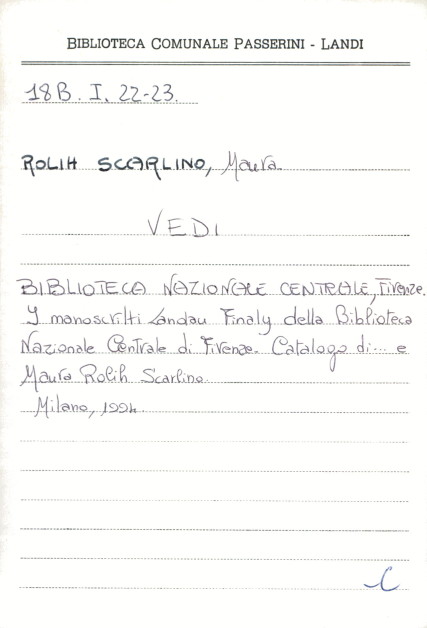 BIBLIOTECA COMUNALE PASSERINI - LANDI
18B. I. 22-23.
ROLIH SCARLINO, Maura.
VEDI
BIBLIOTECA NAZIONALE CENTRALE, Firenze.
I manoscritti Landau Finaly della Biblioteca
Nazionale Centrale di Firenze. Catalogo di... e
Maura Rolih Scarlino.
Milano, 1994.